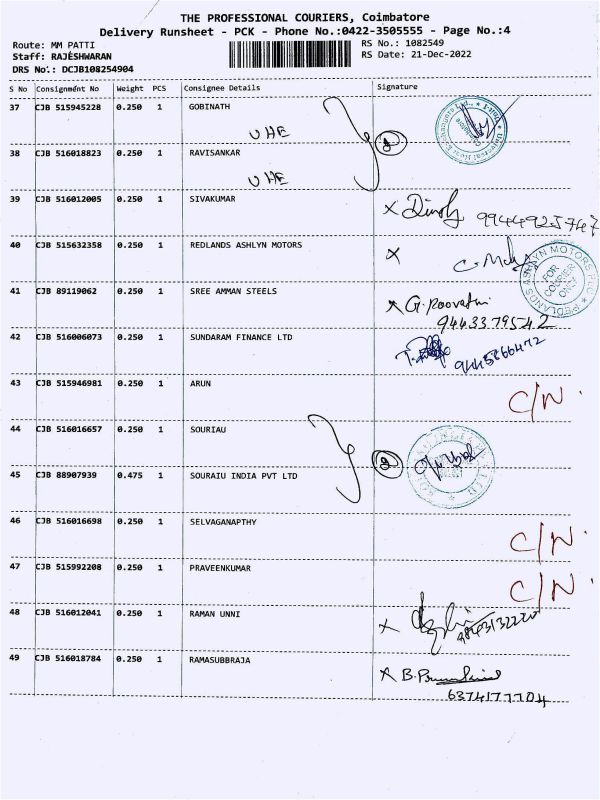 THE PROFESSIONAL COURIERS, Coimbatore
Delivery Runsheet - PCK - Phone No.:0422-3505555 - Page No.:4
Route: MM PATTI
Staff: RAJESHWARAN
DRS No.: DCJB108254904
RS No.: 1082549
RS Date: 21-Dec-2022
S No Consignment No Weight PCS Consignee Details Signature
37 CJB 515945228 0.250 1 GOBINATH
UHE
38 CJB 516018823 0.250 1 RAVISANKAR
2
UHE
39 CJB 516012005 0.250 1 SIVAKUMAR
X 9944925747
40 CJB 515632358 0.250 1 REDLANDS ASHLYN MOTORS
X
REDLANDS ASHLYN MOTORS PLC
FOR COURIER ONLY
41 CJB 89119062 0.250 1 SREE AMMAN STEELS
X G. Poovathi
9443379542
42 CJB 516006073 0.250 1 SUNDARAM FINANCE LTD
9445866472
43 CJB 515946981 0.250 1 ARUN
C/N.
44 CJB 516016657 0.250 1 SOURIAU
2
45 CJB 88907939 0.475 1 SOURAIU INDIA PVT LTD
46 CJB 516016698 0.250 1 SELVAGANAPTHY
C/N.
47 CJB 515992208 0.250 1 PRAVEENKUMAR
C/N.
48 CJB 516012041 0.250 1 RAMAN UNNI
X
49 CJB 516018784 0.250 1 RAMASUBBRAJA
X B.
6374177704